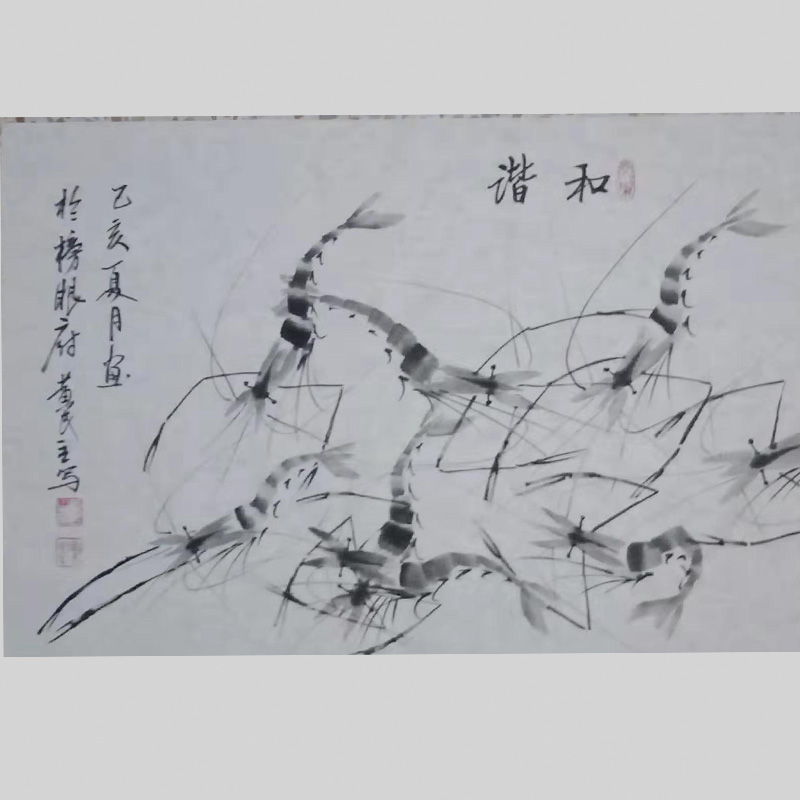 和谐
乙亥夏月画
于榜眼府黄民主写